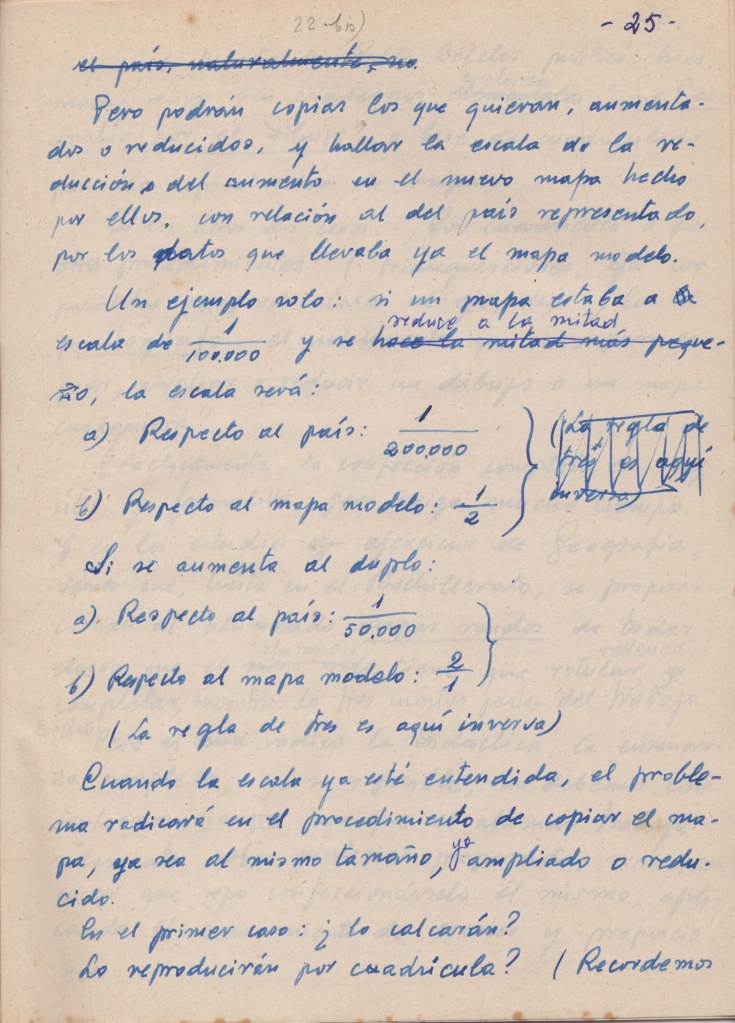 22-bis)
- 25 -
el país, naturalmente, no.
Pero podrán copiar los que quieran, aumenta-
dos o reducidos, y hallar la escala de la re-
ducción o del aumento en el nuevo mapa hecho
por ellos, con relación al del país representado,
por los datos que llevaba ya el mapa modelo.
Un ejemplo solo: si un mapa estaba a
reduce a la mitad
escala de 1/100.000 y se hace la mitad más peque-
ño, la escala será:
a) Respecto al país: 1/200.000 (La regla de
tres es aquí
b) Respecto al mapa modelo: 1/2 inversa)
Si se aumenta al duplo:
a). Respecto al país: 1/50.000
b) Respecto al mapa modelo: 2/1
(La regla de tres es aquí inversa)
Cuando la escala ya esté entendida, el proble-
ma radicará en el procedimiento de copiar el ma-
pa, ya sea al mismo tamaño, ya ampliado o redu-
cido.
En el primer caso: ¿lo calcarán?
Lo reproducirán por cuadrícula? (Recordemos